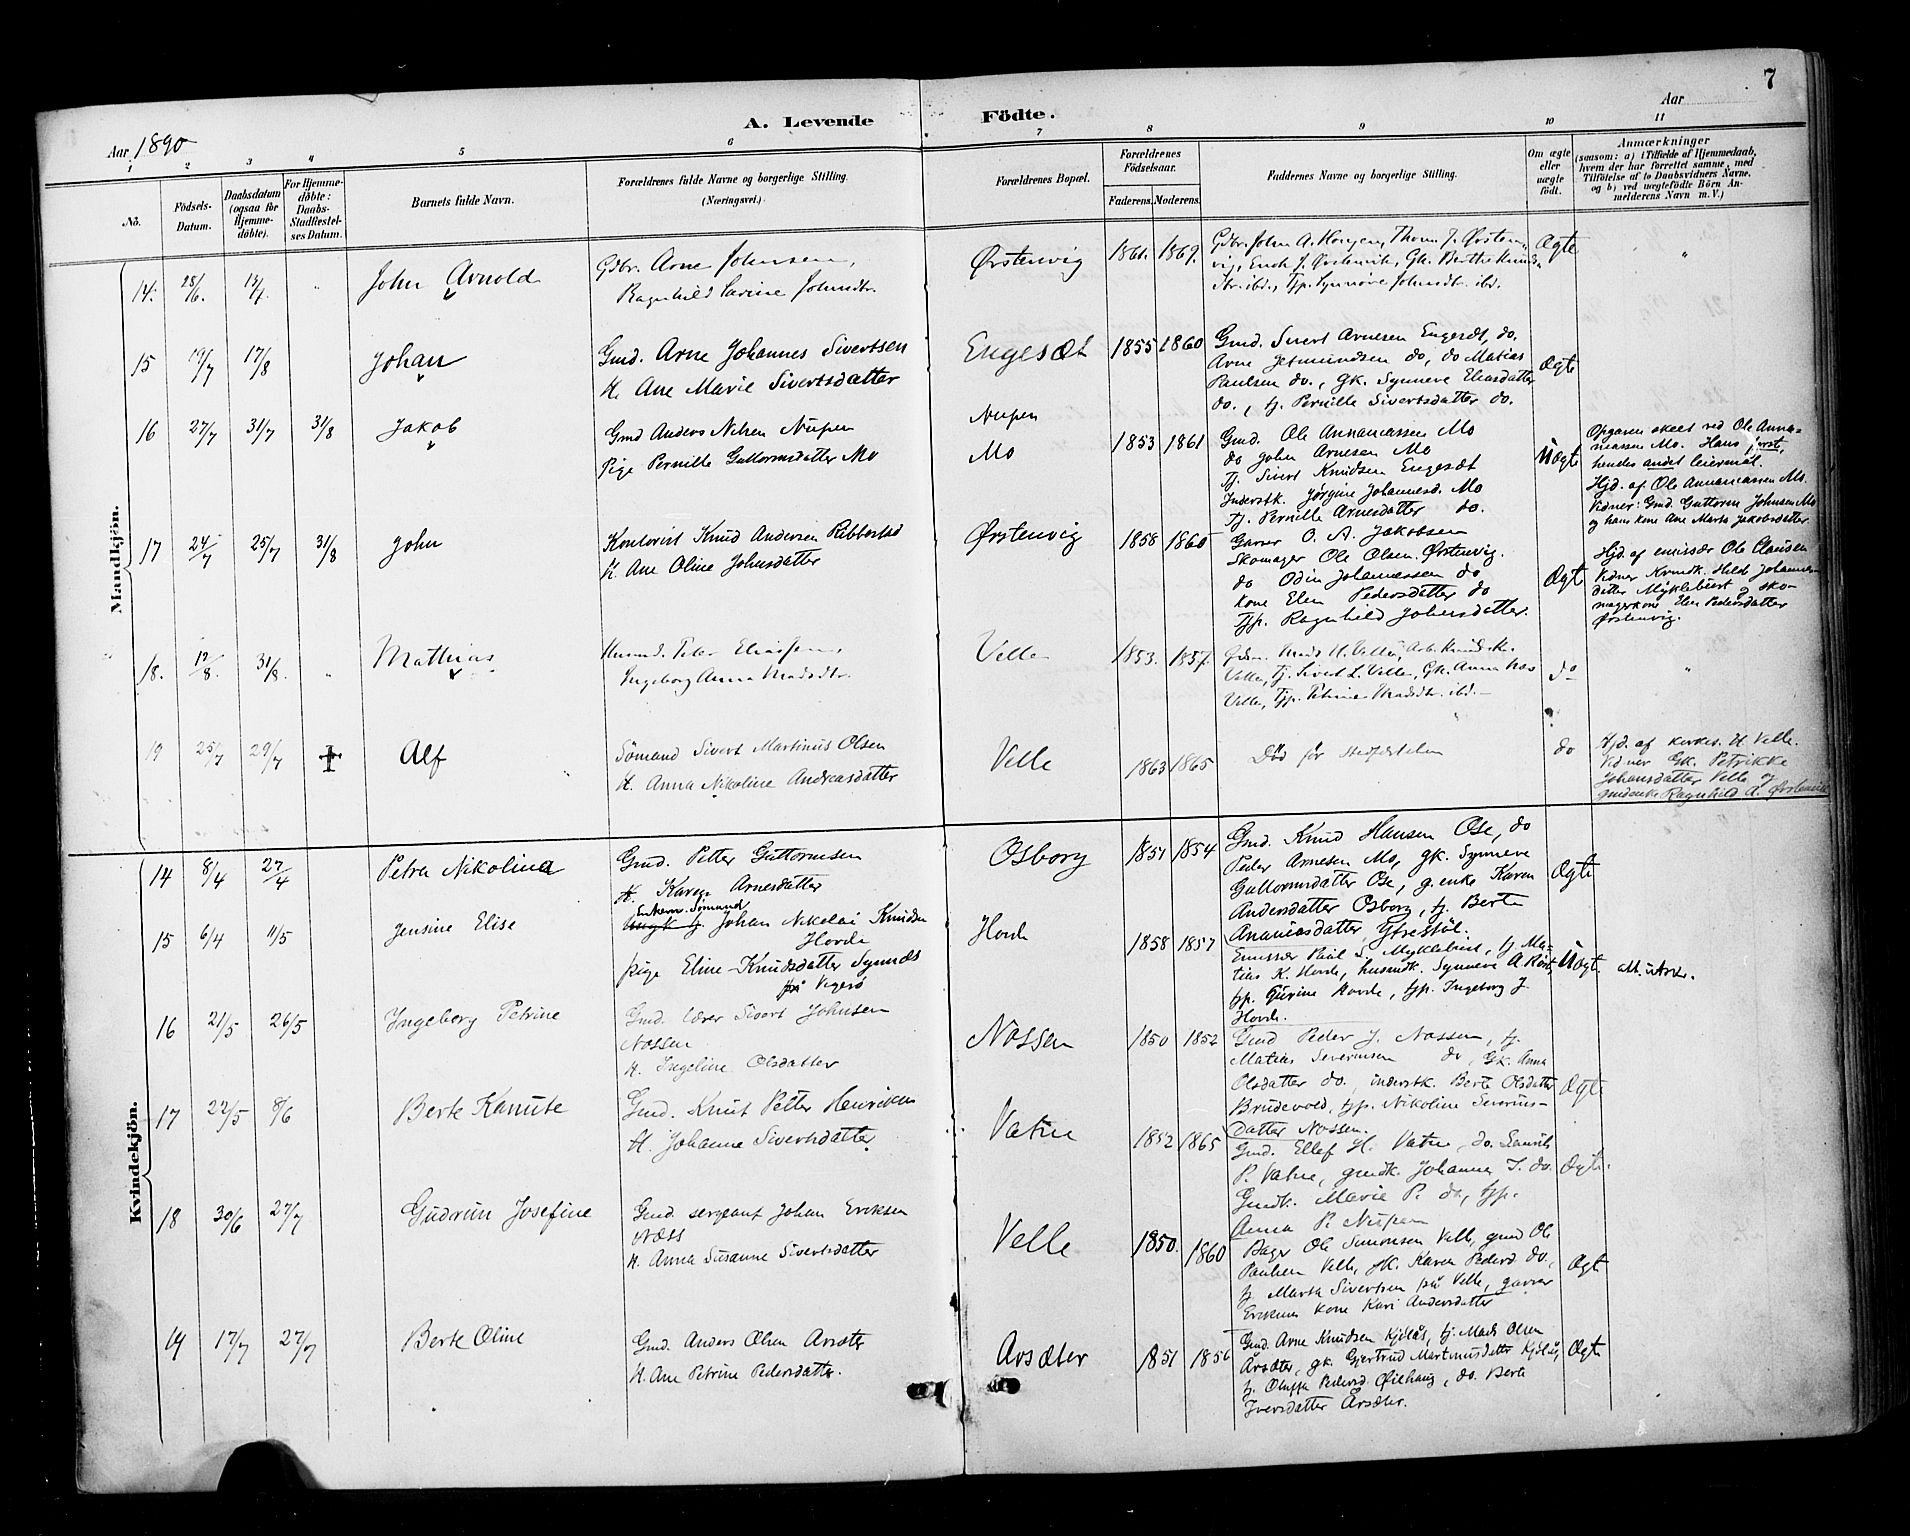 7
A. Levende Födte.
Aar 1890
Aar
1 2 3 4 5 6 7 8 9 10 11
No.
Födsels-Datum.
Daabsdatum (ogsaa for Hjemme-döbte).
For Hjemme-döbte: Daabs-Stadfæstel-ses Datum.
Barnets fulde Navn.
Forældrenes fulde Navne og borgerlige Stilling. (Næringsvei.)
Forældrenes Bopæl.
Forældrenes Födselsaar.
Faderens. Moderens.
Faddernes Navne og borgerlige Stilling.
Om ægte eller uægte födt.
Anmærkninger
(saasom: a) i Tilfælde af Hjemmedaab,
hvem der har forrettet samme, med
Tilföielse af to Daabsvidners Navne,
og b) ved uægtefödte Börn An-
melderens Navn m. V.)
Mandkjön.
14. 28/6. 13/7. " John Arnold
Gdbr. Arne Johnsen,
Ragnhild Johnsdtr.
Ørstenvig 1861. 1869.
Gdbr. John A.
Ørstenvik, Gk. Berthe
ibd., Tjp. Synnøve Johnsdtr. ibd.
Ægte "
15 19/7 17/8 Johan
Gmd. Arne Johannes Sivertsen
H. Ane Marie Sivertsdatter
Engesæt 1855 1860
Gmd. Sivert Arnesen Engesæt, do.
Arne Jetmundsen do, do Matias
Paulsen do., gk. Synneve Eliasdatter
do., tj. Pernille Sivertsdatter do.
Ægte
16 27/7 31/7 31/8 Jakob
Gmd Anders Nilsen Nupen
Pige Pernille Guttormsdatter Mo
Nupen
Mo 1853 1861
Gmd. Ole Annaniassen Mo
do John Arnesen Mo
Tj. Sivert Knudsen Engesæt
Inderstk. Jørgine Johannesd. Mo
Tj. Pernille Arnesdatter do.
Uægte
Opgaven skeet ved Ole Anna-
niassen Mo. Hans første,
hendes andet leiermål.
Hjd. af Ole Annaniassen Mo.
Vidner: Gmd. Guttorm Johnsen Mo
og hans kone Ane Marta Jakobsdatter
17 24/7 25/7 31/8 John
Kontorist Knud Andersen Ribbestad
H. Ane Oline Johnsdatter
Ørstenvig 1858 1860
Garver O. A. Jakobsen
Skomager Ole Olsen Ørstenvig.
do Odin Johannessen do
Kone Elen Pedersdatter do
Tjp. Ragnhild Johnsdatter.
Ægt
Hjd. af emissær Ole Clausen
Vidner Kvindk. Hild Johannes-
datter Myklebust og sko-
magerkone Elen Pedersdatter
Ørstenvig.
18. 12/8. 31/8. " Mathias
Husmd. Peter Eliassen,
Ingeborg Anna Madsdtr.
Velle 1853. 1857.
Mads H. Velle,
Velle, Tj. Sivert L. Velle, Gk. Anna
Velle, Tjp. Petrine Madsdtr. ibd.
do "
19 25/7 29/7 ✝ Alf
Sømand Sivert Martinus Olsen
H. Anna Nikoline Andreasdatter
Velle 1863 1865
Død før Stadfæstelsen
do
Hjd. af kirkes. H. Velle.
Vidner Gk. Petrikke
Johansdatter Velle og
Ragnhild A. Ørstenvik
Kvindekjön.
14 8/4 27/4 Petra Nikolina
Gmd. Petter Guttormsen
H. Karen Arnesdatter
Osborg 1851 1854
Gmd. Knud Hansen Ose, do
Peder Arnesen Mo, gk. Synneve
Guttormsdatter Ose, g.enke Karen
Andersdatter Osborg, tj. Berte
Ananiasdatter Ytrestøl.
Ægte
15 6/4 11/5 Jensine Elise
Enkem. Sømand
Johan Nikolai Knudsen
Hovde
Pige Eline Knudsdatter Synnes
på Vegsø
Hovde 1858 1857
Emissær Paul S. Myklebust, tj. Ma-
tias K. Hovde, husmdk. Synneve A
tjp. Gurine Hovde, tjp. Ingeborg J.
Hovde.
Uægt.
16 21/5 26/5 Ingeborg Petrine
Gmd. lærer Sivert Johnsen
Nossen
H. Ingeline Olsdatter
Nossen 1850 1852
Gmd Peder J. Nossen, tj.
Matias Severinsen do, Gk. Anna
Olsdatter do., inderstk. Berte Olsdatter
Brudevold, tjp. Nikoline Severins-
datter Nossen.
Ægte
17 22/5 8/6 Berte Kanute
Gmd. Knut Petter Henriksen
H. Johanne Sivertsdatter
Vatne 1852 1865
Gmd. Ellef H. Vatne, do. Laurits
P. Vatne, gmdk. Johanne I. do.
Gmdk. Marie P. do, tjp.
Anna P. Nupen
Ægte
18 30/6 27/7 Gudrun Josefine
Gmd. sergeant Johan Eriksen
Næss
H. Anna Susanne Sivertsdatter
Velle 1850. 1860
Bager Ole Simonsen Velle, gmd Ole
Paulsen Velle, gk. Karen Pedersd do,
tj. Marta Sivertsen på Velle, garver
Eriksens kone Kari Andersdatter
Ægt
19 17/7 27/7 Berte Oline
Gmd. Anders Olsen Arsæter
H. Ane Petrine Pedersdatter.
Arsæter 1851 1856
Gmd. Arne Knudsen Kjølås, tj. Mads Olsen
Årsæter, gk. Gjertrud Martinusdatter Kjølås,
tj. Oluffa Pedersd. Øiehaug, do. Berte
Iversdatter Årsæter.
Ægte